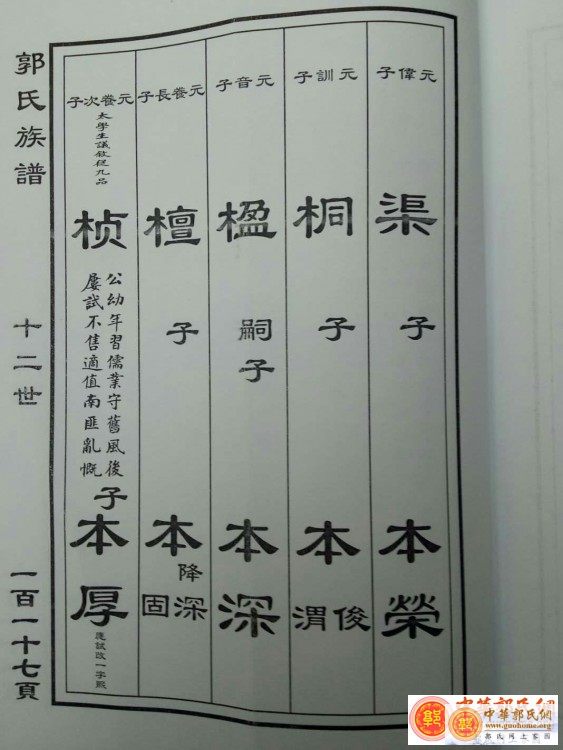 元偉子
渠
子
本榮
元訓子
桐
子
本
俊渭
元音子
楹
嗣子
本深
元養長子
檀
子
本
降深
固
元養次子
太學生議敘從九品
桢
公幼年習儒業守舊風後
屢試不售適值南匪亂慨
子
本厚
應試改一字熙
郭氏族譜
十二世
一百一十七頁
中華郭氏網
www.guohome.org
郭氏网上家园